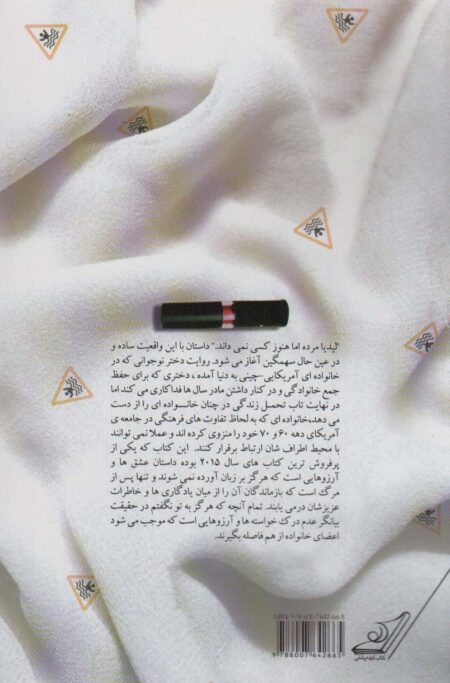 "لیدیا مرده اما هنوز کسی نمی داند." داستان با این واقعیت ساده و
در عین حال سهمگین آغاز می شود. روایت دختر نوجوانی که در
خانواده ای آمریکایی -چینی به دنیا آمده ، دختری که برای حفظ
جمع خانوادگی و در کنار داشتن مادر سال ها فداکاری می کند اما
در نهایت تاب تحمل زندگی در چنان خانواده ای را از دست
می دهد، خانواده ای که به لحاظ تفاوت های فرهنگی در جامعه ی
آمریکای دهه ۶۰ و ۷۰ خود را منزوی کرده اند و عملا نمی توانند
با محیط اطراف شان ارتباط برقرار کنند. این کتاب که یکی از
پرفروش ترین کتاب های سال ۲۰۱۵ بوده داستان عشق ها و
آرزوهایی است که هرگز بر زبان آورده نمی شوند و تنها پس از
مرگ است که بازماندگان آن را از میان یادگاری ها و خاطرات
عزیزشان درمی یابند. تمام آنچه که هرگز به تو نگفتم در حقیقت
بیانگر عدم درک خواسته ها و آرزوهایی است که موجب می شود
اعضای خانواده از هم فاصله بگیرند.
ISBN: 978-600-7642-66-5
9 786007 642665
کتاب کوله پشتی